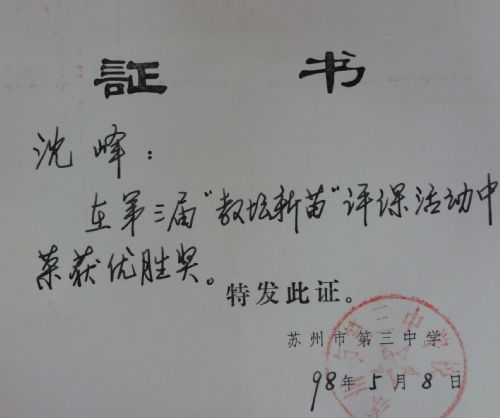 証 书
沈峰：
在第三届"教坛新苗"评课活动中
荣获优胜奖。
特发此证。
苏州市第三中学
98年5月8日